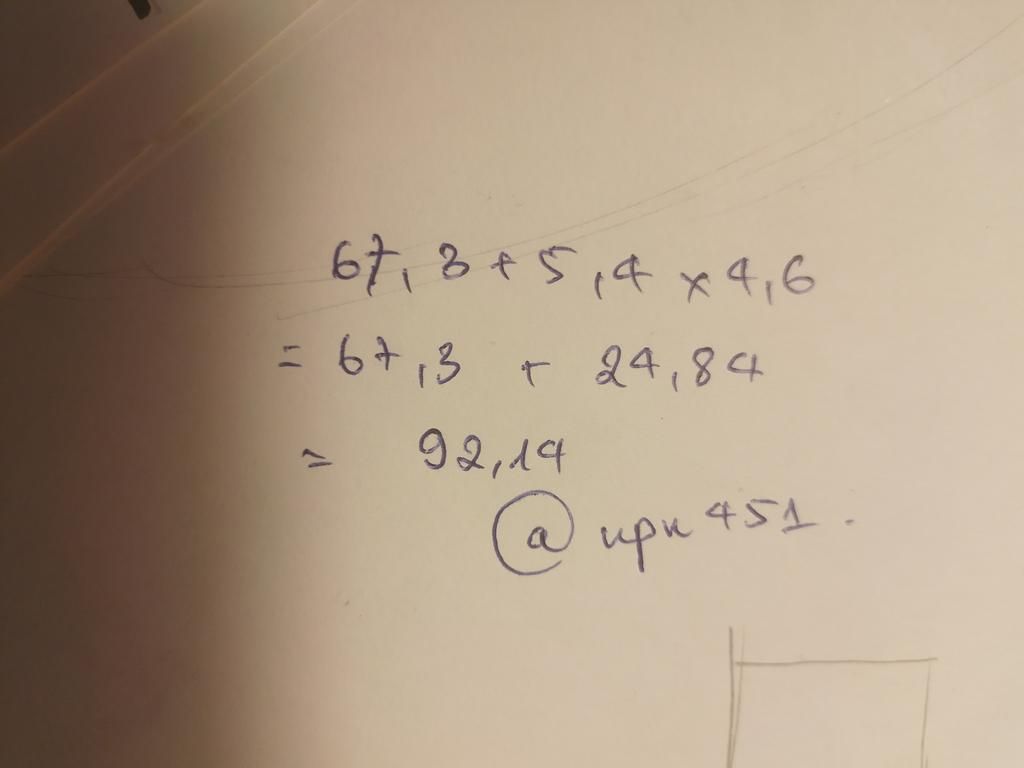 67,3 + 5,4 × 4,6
= 67,3 + 24,84
= 92,14
@upu451.